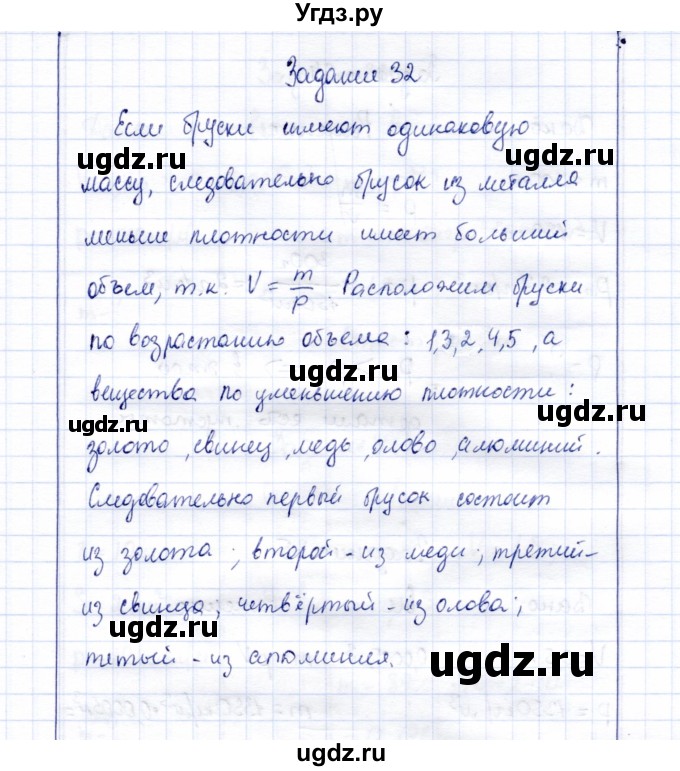 Угдз.ру
Задание 32
Если бруски имеют одинаковую
массу, следовательно брусок из металла
меньше плотности имеет больший
объем, т.к. V = m/ρ. Расположим бруски
по возрастанию объема: 1,3,2,4,5, а
вещества по уменьшению плотности:
золото, свинец, медь, олово, алюминий.
Следовательно первый брусок состоит
из золота; второй – из меди; третий –
из свинца; четвёртый – из олова;
пятый – из алюминия
ugdz.ru
ugdz.ru
ugdz.ru
ugdz.ru
ugdz.ru
ugdz.ru
ugdz.ru
ugdz.ru
ugdz.ru